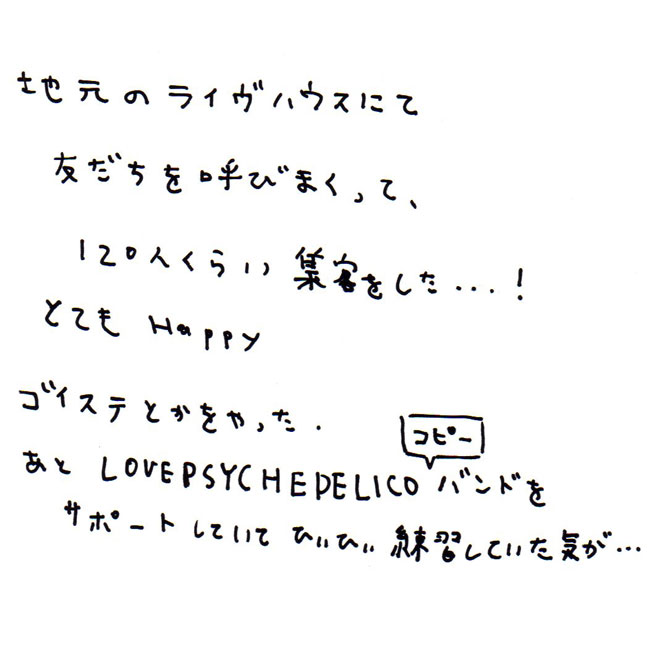 地元のライヴハウスにて
友だちを呼びまくって、
120人くらい集客をした...!
とてもHappy
ゴイステとかをやった.
コピー
あとLOVEPSYCHEDELICOバンドを
サポートしていてひぃひぃ練習していた気が...